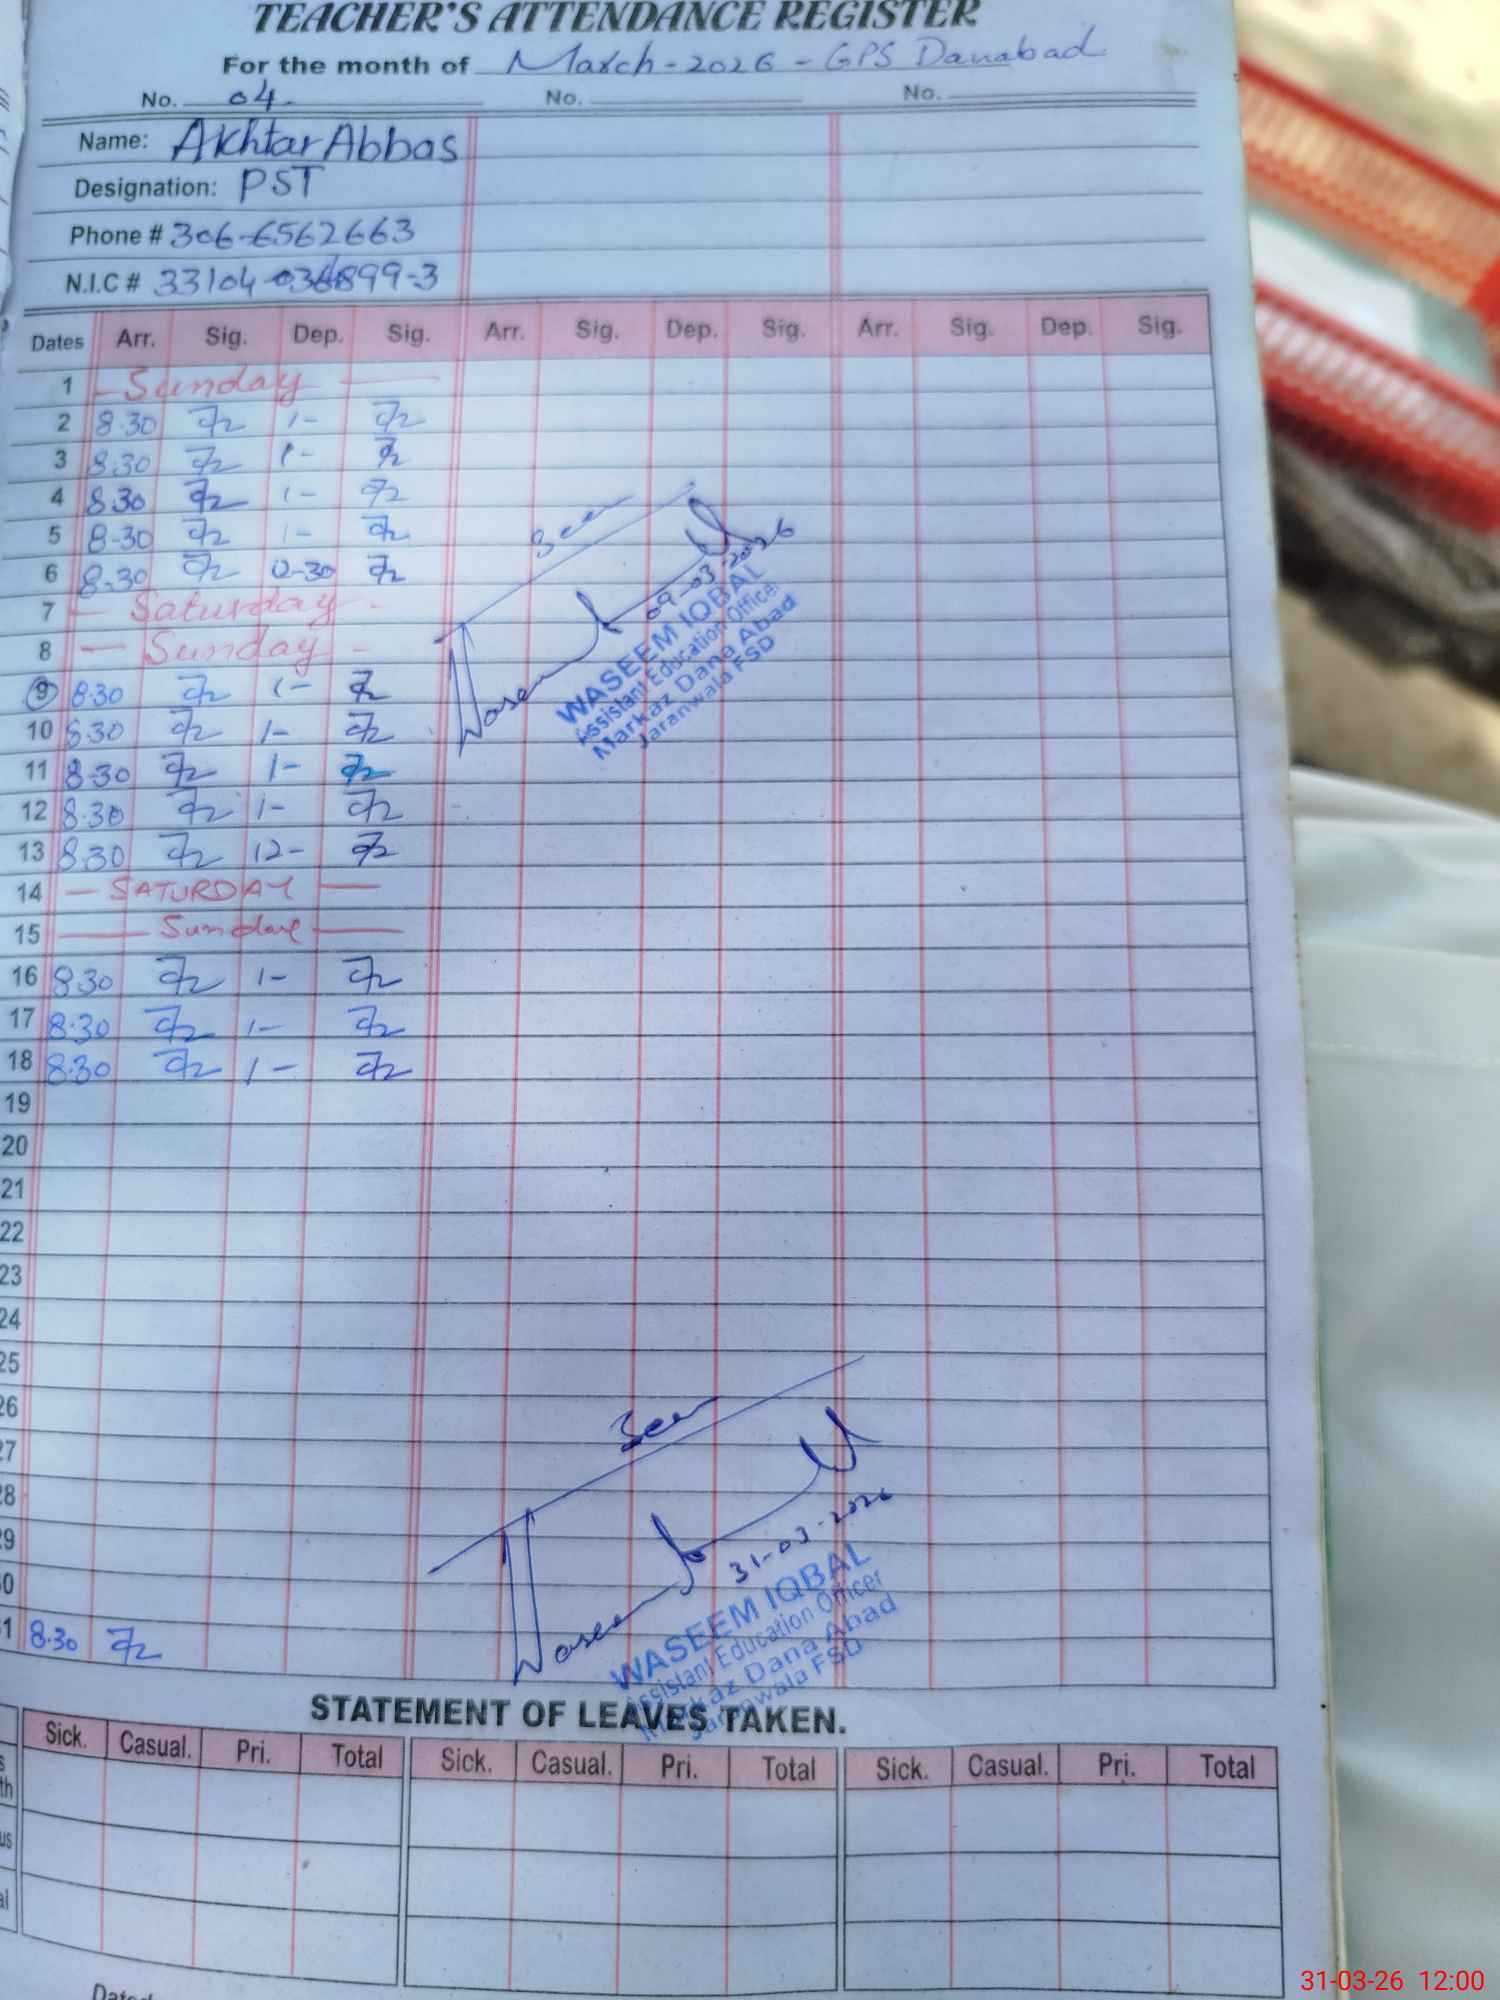 TEACHER'S ATTENDANCE REGISTER
For the month of March-2026-GPS Danabad
No. 04. No. No.
Name: Akhtar Abbas
Designation: PST
Phone # 306-6562663
N.I.C # 33104-
Dates Arr. Sig. Dep. Sig. Arr. Sig. Dep. Sig. Arr. Sig. Dep. Sig.
1 - Sunday -
2 8.30 1-
3 8.30 1-
4 8.30 1-
5 8-30 1-
6 8-30 12-30
7 - Saturday -
8 - Sunday -
9 8.30 1-
10 8.30 1-
11 8.30 1-
12 8.30 1-
13 8.30 12-
14 - SATURDAY -
15 - Sunday -
16 8.30 1-
17 8.30 1-
18 8.30 1-
19
20
21
22
23
24
25
26
27
28
29
30
31 8.30
Seen
09-03-2026
WASEEM IQBAL
Assistant Education Officer
Markaz Dana Abad
Jaranwala FSD
Seen
31-03-2026
WASEEM IQBAL
Assistant Education Officer
Markaz Dana Abad
Jaranwala FSD
STATEMENT OF LEAVES TAKEN.
Sick. Casual. Pri. Total Sick. Casual. Pri. Total Sick. Casual. Pri. Total
31-03-26 12:00